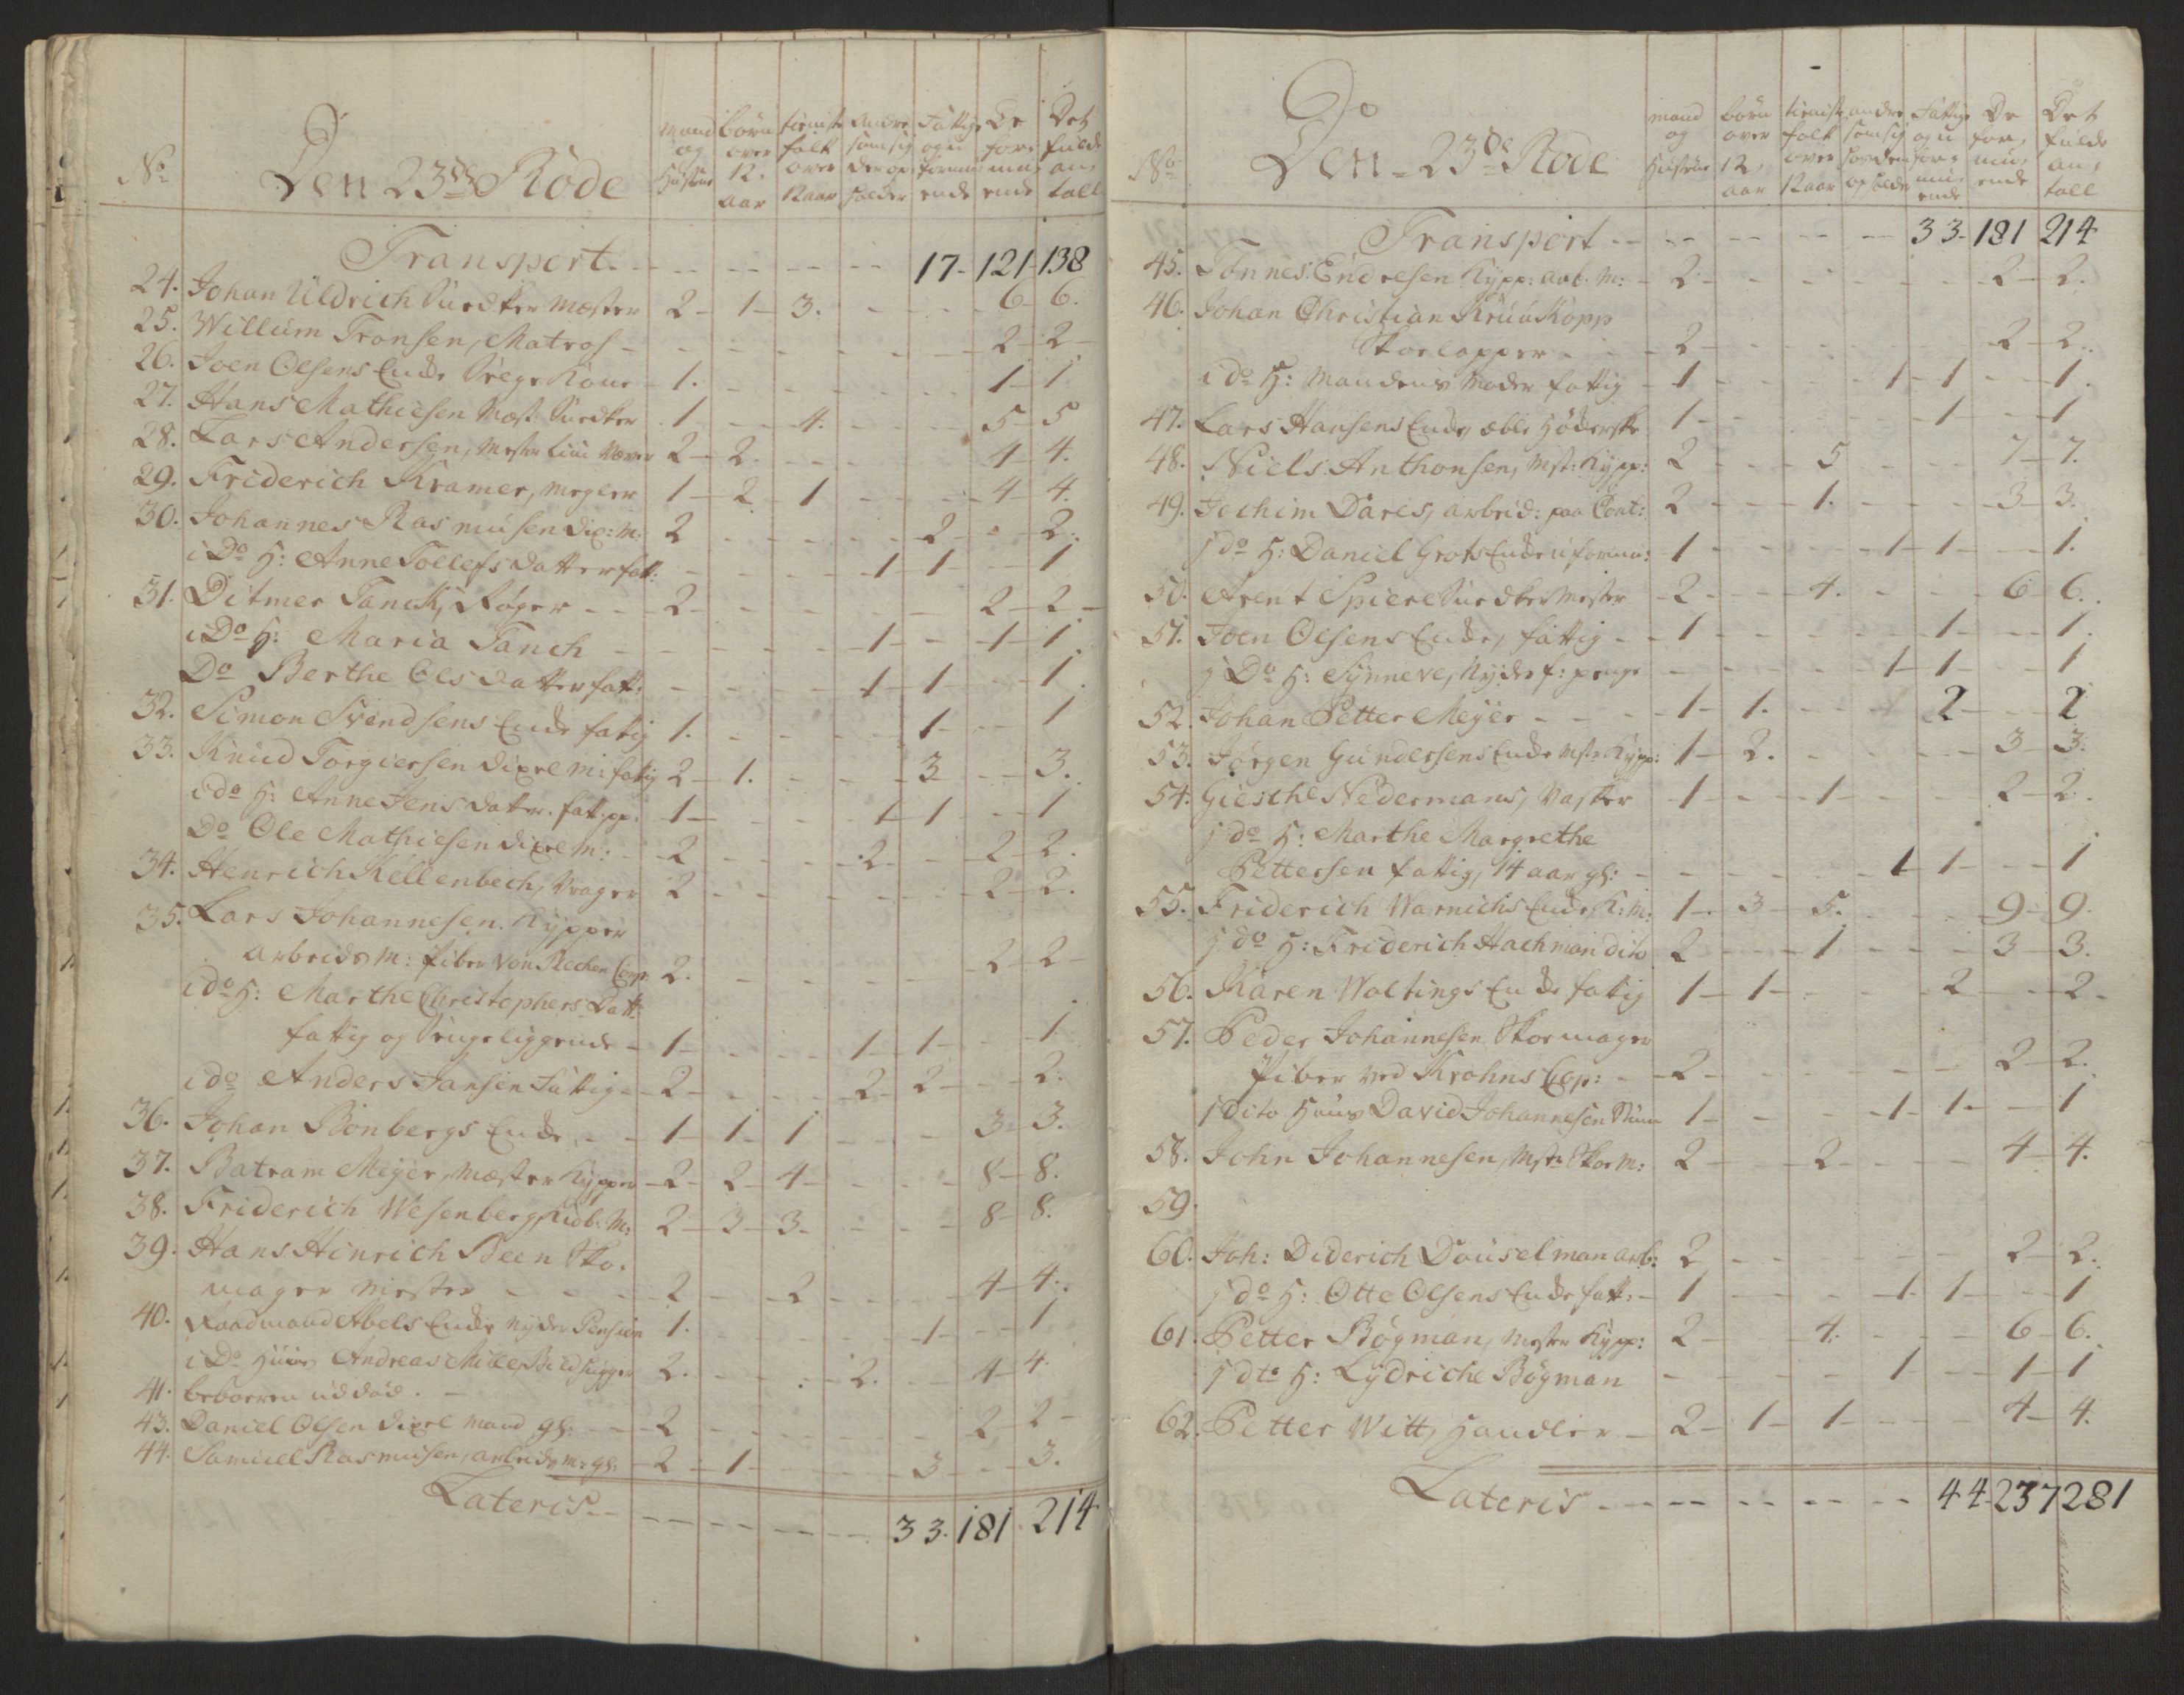 No Den 23de Rode mand og Hustrue børn over 12. aar tieniste folk over 12 aar Andre som sig der op holder Fattige og u formuende De formuende Det fulde antall
Transport - - - - - - 17 - 121 - 138
24. Johan Uldrich Snedker Mester 2 - 1 - 3. - - - 6 - 6.
25. Willum Tronsen, Matros - - - - - 2 - 2 -
26. Joen Olsens Enke 1. - - - - 1 - 1
27. Hans Mathiesen Mest: Snedker 1 - - 4. - - - 5 - 5
28. Lars Andersen, Mester Lini Wæver 2 - 2. - - - - 4 - 4.
29. Friderich Kramer, Megler 1 - 2. - 1 - - - 4 - 4.
30. Johannes Rasmusen Dix: M: 2 - - - - 2 - - 2.
i Do H: Anne Tollefsdatter fatt: - - - 1 - 1 - - 1
31. Ditmer Tanck, Røger - - 2. - - - - - 2 - 2 -
i Do H: Maria Tanch - - - - 1 - - 1 - 1.
Do Berthe Olsdatter fatt: - - - - 1 - 1 - - 1.
32. Simon Svendsens Enke fatig 1. - - - - 1 - - 1
33. Knud Torgiersen Dixel M: fatig 2 - 1. - - - 3 - - 3.
i do H: Anne Jensdatter. fat: pp: 1 - - - - 1 - 1 - - 1
Do Ole Mathiesen dixel M: - 2 - - - 2 - - 2 - 2.
34. Henrich Kellenbech, Vrager 2 - - - - - - 2 - 2.
35. Lars Johannesen. Kypper
arbeids M: Piber Von Rechen Comp: 2. - - - - - 2 - 2 -
i do H: Marthe Christophers Datt:
fattig og Senge liggende - 1 - - - - 1 - 1 - - 1
i do Anders Jansen Fattig - 2 - - - - 2 - 2 - - 2.
36. Johan Bønbergs Enke - - 1 - 1 - 1 - - - 3 - 3.
37. Batram Meyer, Mæster Kypper - 2 - 2 - 4 - - - - 8 - 8.
38. Friderich Wesenberg, 2 - 3 - 3. - - - 8 - 8.
39. Hans Hinrich Been Sko.
mager Mester - - - 2 - - 2 - - - - 4 - 4.
40. Raadmand Abels Enke nyder Pension 1. - - - - 1 - - 1
i Do Huus Andreas Mille 2. - - - 2. - - 4 - 4.
41. beboeren uddød. -
43. Daniel Olsen dixel Mand gl: - - 2 - - - - - 2 - 2 -
44. Samuel Rasmusen, arbeids M: gl: - 2 - 1 - - - - 3 - - 3.
Lateris - - - - - - - - 33. 181. 214
No Do Den 23de Rode mand og Hustrue børn over 12, aar tieniste folk over 12 aar andre som sig hos dem opholder Fattige og u formuende De formuende Det fulde antall
Transport - - - - - - 33 - 181 214
45. Tønnes Endresen Kypp: arb: M: - 2 - - - - - - 2 - 2.
46. Johan Christian Kruuskopp
Skoelapper - - - 2 - - - - - 2 - 2.
i do H: Mandens Moder fattig - 1 - - - - 1 - 1 - - 1.
47. Lars Hansens Enke, æble Høderske 1 - - - - 1 - - 1
48. Niels Anthonsen, Mst: Kypp: 2 - - - 5 - - - 7 - 7.
49. Jochim Dares, arbeid: paa Cont: 2 - - - 1. - - - 3 - 3.
j do H: Daniel Grots Enke uformu: 1 - - - - 1 - 1 - - 1.
50. Arent Spiere Snedker Mester - 2 - - - 4. - - - 6 - 6.
51. Joen Olsens Enke, fattig - - 1 - - - - - 1 - - 1.
j Do H: Synneve, Nyder f: penge - - - - 1 - 1 - - 1
52. Johan Petter Meyer - - - - 1 - 1. - - - 2 - - 2
53. Jørgen Gundersens Enke Mst: Kypp: 1 - 2. - - - - 3 - 3.
54. Giesche Nedermans, Vasker - 1 - - - 1 - - - 2 - 2.
j do H: Marthe Margrethe
Pettersen fattig, 14 aar gl: - - - - - 1 1 - - - 1
55. Friderich Warnichs Enke, K: M: 1 - 3 - 5. - - - 9 - 9.
j do H: Friderich Hachman dito 2 - - - 1 - - - 3 - 3.
56. Karen Woltings Enke fatig 1 - 1 - - - 2 - - 2 -
57. Peder Johannesen Skoemager
Piber ved Krohns Cop: - - 2 - - - - - 2 - 2.
j Dito Huus David Johannesen 1 - - - - 1 - 1. - - 1
58. John Johannesen, Mstr: Skoe M: 2 - - 2 - - - - 4 - 4.
59.
60. Joh: Diderich Douselman arb: 2 - - - - - - 2 - 2.
j do H: Otte Olsens Enke fatt: - 1 - - - - 1. 1 - - - 1
61. Petter Bøgman, Mester Kypp: 2 - - 4. - - - 6 - 6.
j dto H: Lydriche Bøgman - - - - 1 - - 1 - 1
62. Petter Witt, Handler - 2 - 1 - 1 - - - 4 - 4.
Lateris - - - - - - - 44 237 281